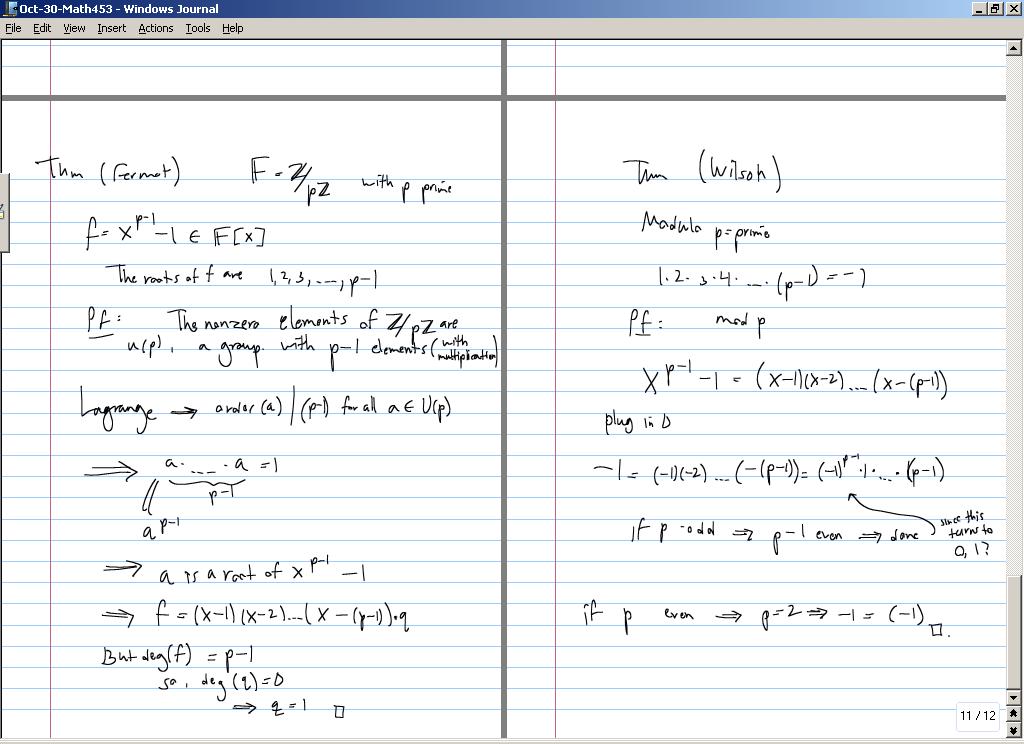 Oct-30-Math453 - Windows Journal
File Edit View Insert Actions Tools Help
Thm (Fermat) F = Z/pZ with p prime
f = x^{p-1} - 1 ∈ F[x]
The roots of f are 1, 2, 3, ..., p-1
Pf: The nonzero elements of Z/pZ are
u(p), a group with p-1 elements (with multiplication)
Lagrange → order(a) | (p-1) for all a ∈ U(p)
⟹ a · ... · a = 1
p-1
||
a^{p-1}
⟹ a is a root of x^{p-1} - 1
⟹ f = (x-1)(x-2)...(x-(p-1))·q
But deg(f) = p-1
so, deg(q) = 0
⟹ q = 1 □
Thm (Wilson)
Modula p = prime
1·2·3·4· ... ·(p-1) = -1
Pf: mod p
x^{p-1} - 1 = (x-1)(x-2)...(x-(p-1))
plug in 0
-1 = (-1)(-2)...(-(p-1)) = (-1)^{p-1}·1· ... ·(p-1)
if p odd ⟹ p-1 even ⟹ done
since this
turns to
0, 1?
if p even ⟹ p=2 ⟹ -1 = (-1) □.
11 / 12